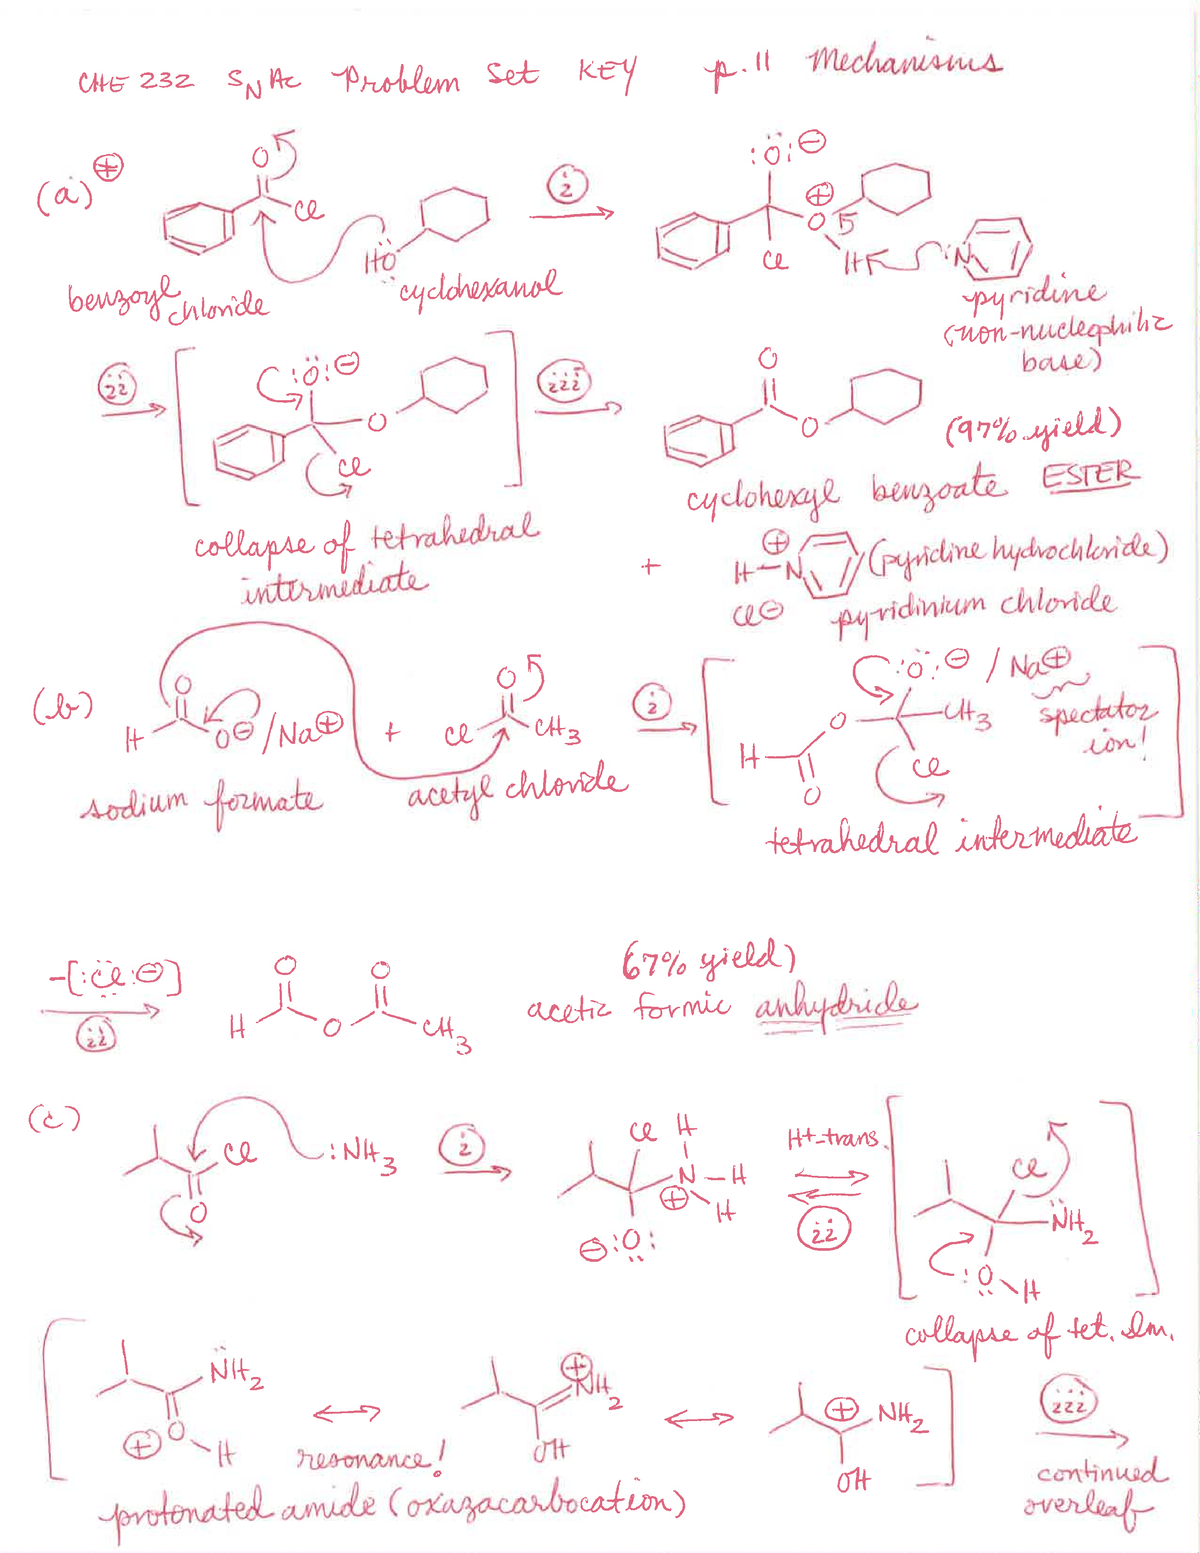 CHE 232 SNAc Problem Set KEY p.11 Mechanisms
(a) ⊕
O
Cl
HO
benzoyl chloride
cyclohexanol
i
:Ö:⊖
⊕
O
Cl
H
:N
pyridine
(non-nucleophilic
base)
ii
:Ö:⊖
O
Cl
collapse of tetrahedral
intermediate
iii
O
O
(97% yield)
cyclohexyl benzoate ESTER
+ H–N⊕ (pyridine hydrochloride)
Cl⊖ pyridinium chloride
(b)
O
H O⊖/Na⊕ + Cl O CH3
sodium formate acetyl chloride
i
:Ö:⊖ / Na⊕
spectator
ion!
H O O CH3
Cl
tetrahedral intermediate
-[:Cl:⊖]
ii
O O
H O CH3
67% yield)
acetic formic anhydride
(c)
Cl :NH3
O
i
Cl H
N–H
⊕ H
⊖:O:
H+-trans.
ii
Cl
NH2
:O
H
collapse of tet. Im.
NH2
⊕ O H
resonance!
⊕
NH2
OH
⊕ NH2
OH
protonated amide (oxazacarbocation)
iii
continued
overleaf